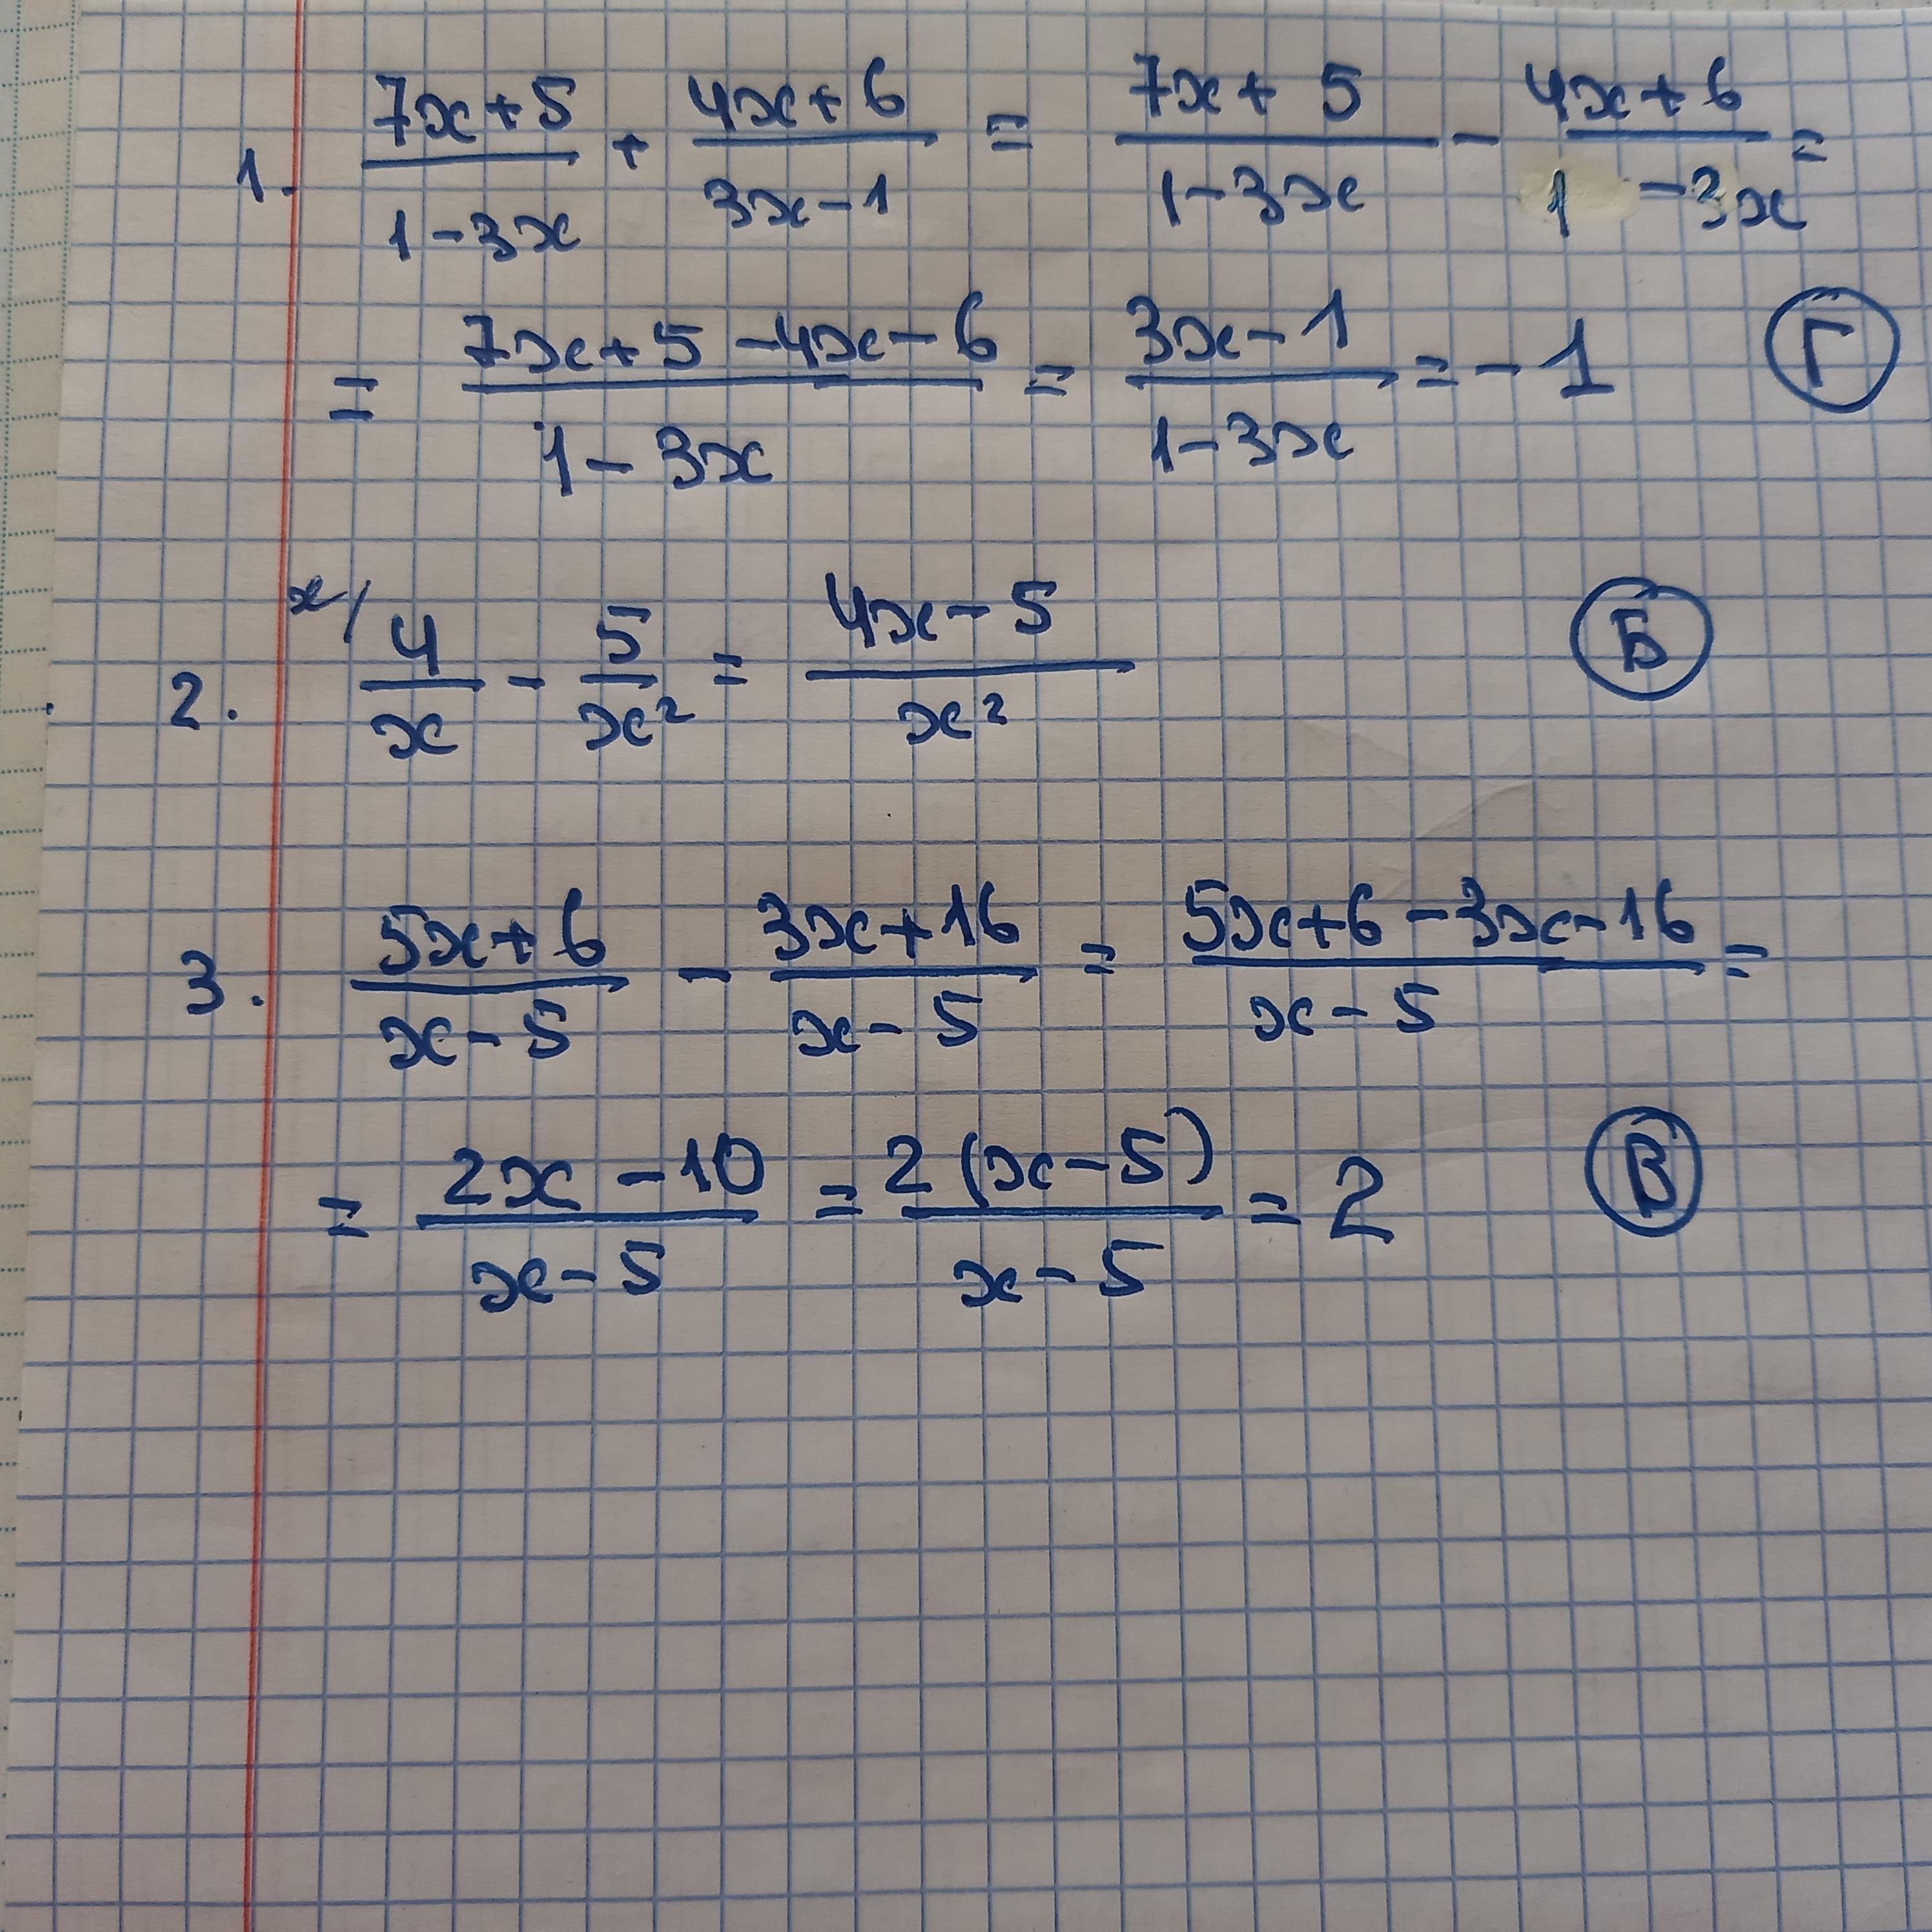 1. (7x+5)/(1-3x) + (4x+6)/(3x-1) = (7x+5)/(1-3x) - (4x+6)/(1-3x) =
= (7x+5-4x-6)/(1-3x) = (3x-1)/(1-3x) = -1 Г
2. x/ 4/x - 5/x² = (4x-5)/x² Б
3. (5x+6)/(x-5) - (3x+16)/(x-5) = (5x+6-3x-16)/(x-5) =
= (2x-10)/(x-5) = 2(x-5)/(x-5) = 2 В